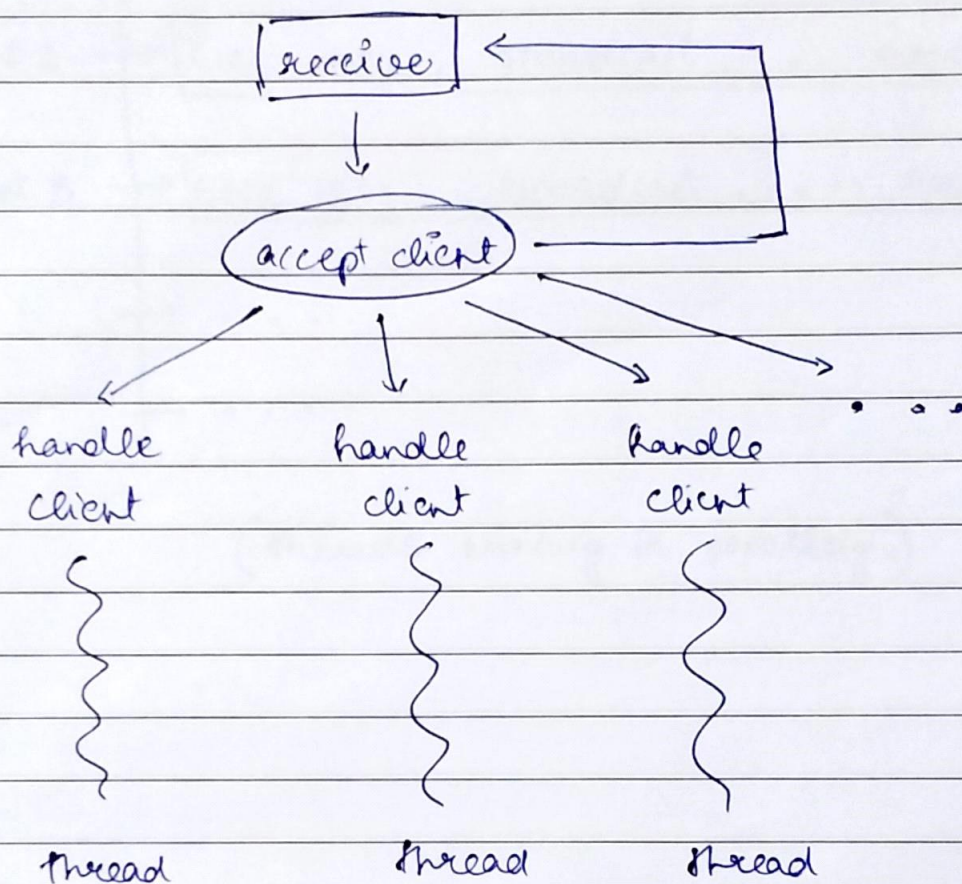 receive
accept client
handle
client
handle
client
handle
client
. . .
thread
thread
thread